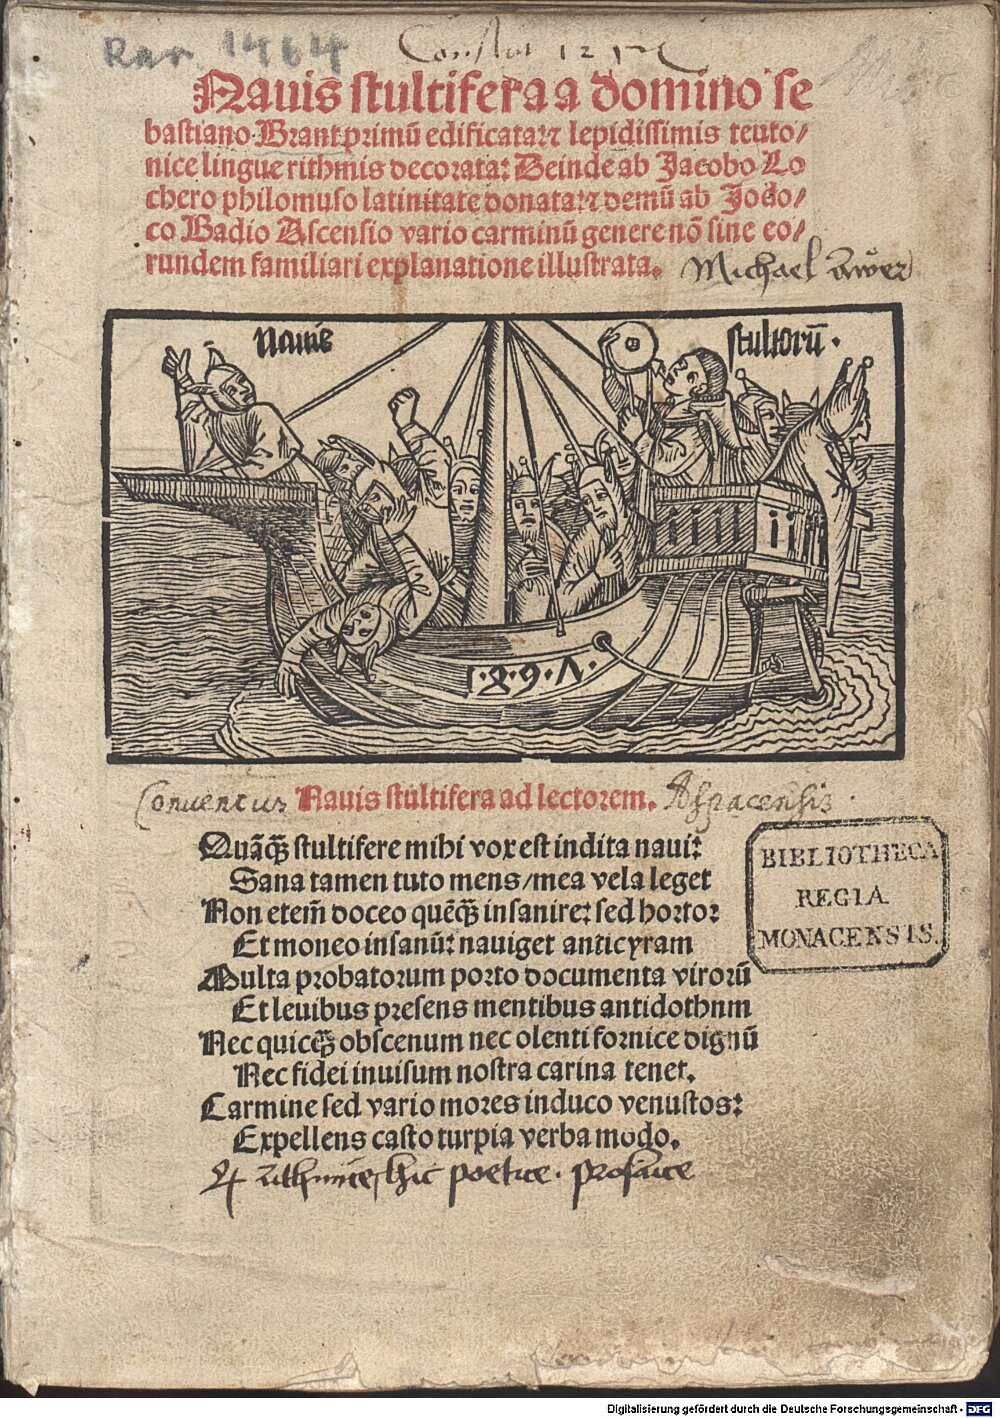 Rar. 1464
Constat 12
Nauis stultifera a domino se
bastiano Brant primū edificata: ⁊ lepidissimis teuto/
nice lingue rithmis decorata: Deinde ab Jacobo Lo
chero philomuso latinitate donata: ⁊ demū ab Jodo/
co Badio Ascensio vario carminū genere nō sine eo/
rundem familiari explanatione illustrata.
Michael Awer
Nauis
stultorū.
Conuentus
Nauis stultifera ad lectorem.
Aspacensis.
Quāqȝ stultifere mihi vox est indita naui:
Sana tamen tuto mens/mea vela leget
Non etem̄ doceo quēqȝ insanire: sed hortor
Et moneo insanū: nauiget anticyram
Multa probatorum porto documenta virorū
Et leuibus presens mentibus antidothnm
Nec quicqȝ obscenum nec olenti fornice dignū
Nec fidei inuisum nostra carina tenet.
Carmine sed vario mores induco venustos:
Expellens casto turpia verba modo.
hic poetice. prosaice
BIBLIOTHECA
REGIA
MONACENSIS.
Digitalisierung gefördert durch die Deutsche Forschungsgemeinschaft - DFG